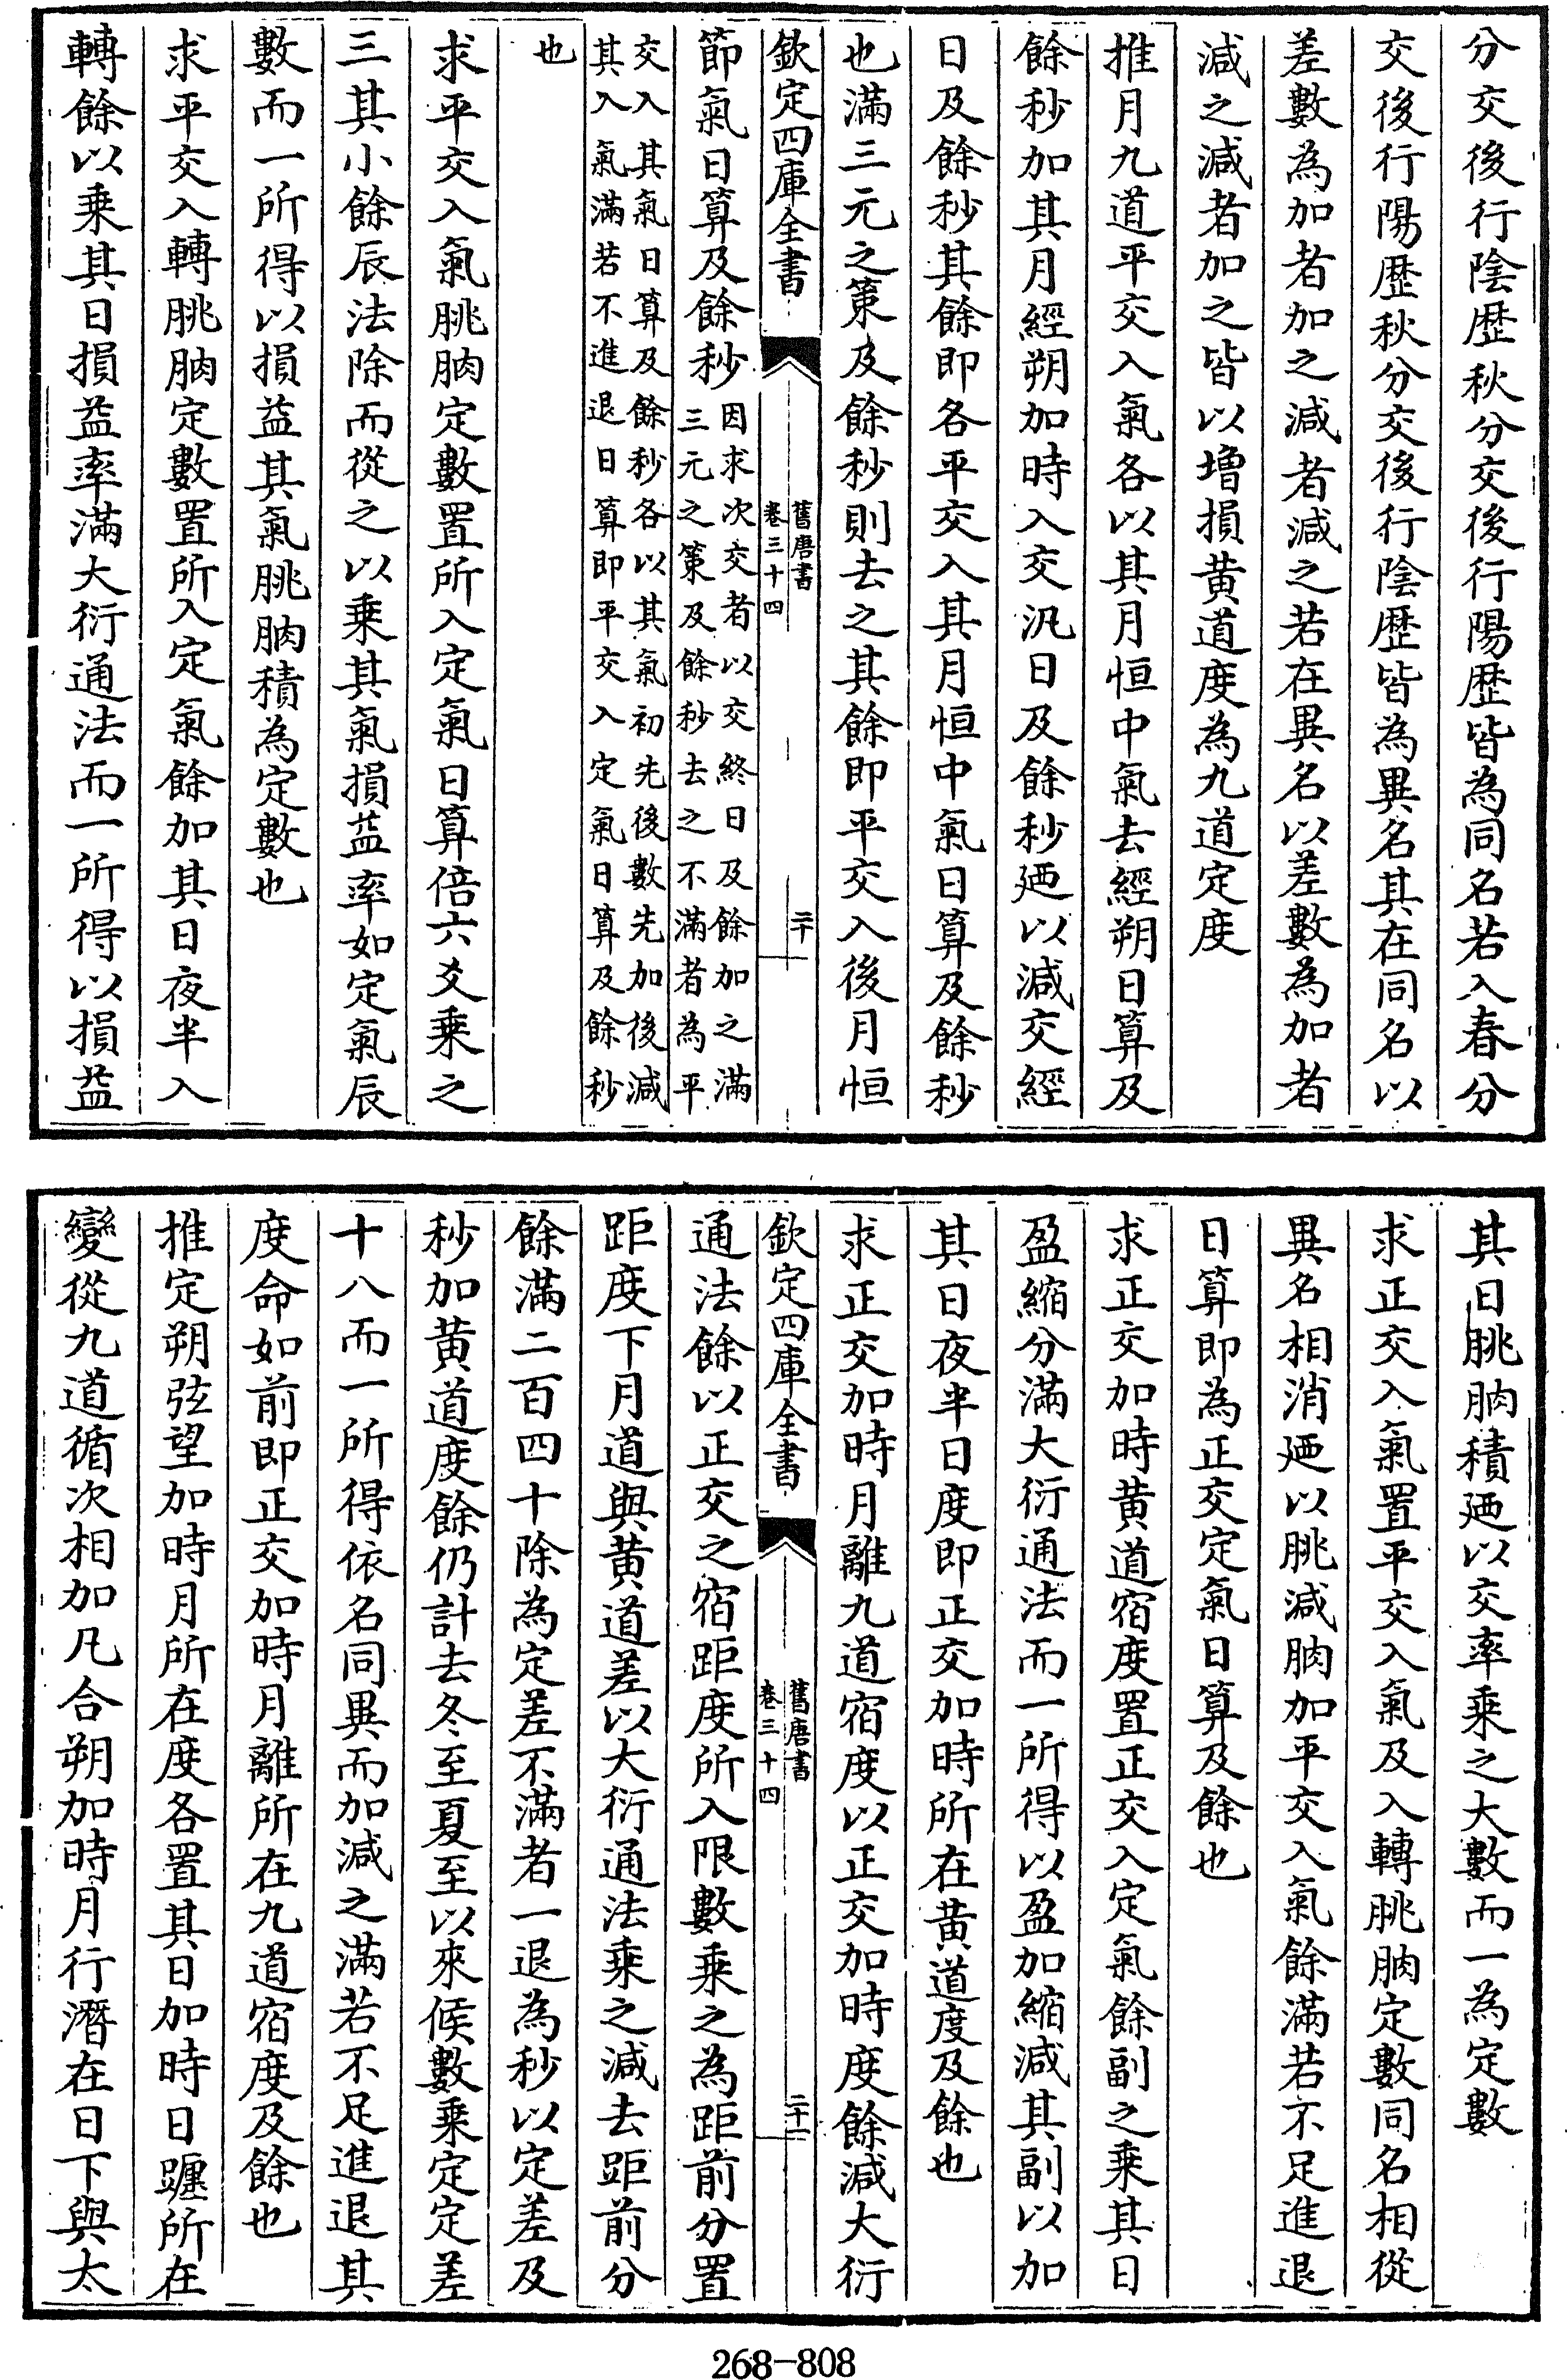 分交後行陰歴秋分交後行陽歴皆為同名若入春分
交後行陽歴秋分交後行陰歴皆為異名其在同名以
差數為加者加之減者減之若在異名以差數為加者
減之減者加之皆以增損黄道度為九道定度
推月九道平交入氣各以其月恒中氣去經朔日算及
餘秒加其月經朔加時入交汎日及餘秒廼以減交經
日及餘秒其餘即各平交入其月恒中氣日算及餘秒
也滿三元之策及餘秒則去之其餘即平交入後月恒
欽定四庫全書
舊唐書
卷三十四
二十
節氣日算及餘秒
因求次交者以交終日及餘加之滿
三元之策及餘秒去之不滿者為平
交入其氣日算及餘秒各以其氣初先後數先加後減
其入氣滿若不進退日算即平交入定氣日算及餘秒
也
求平交入氣朓朒定數置所入定氣日算倍六爻乗之
三其小餘辰法除而從之以乗其氣損益率如定氣辰
數而一所得以損益其氣朓朒積為定數也
求平交入轉朓朒定數置所入定氣餘加其日夜半入
轉餘以乗其日損益率滿大衍通法而一所得以損益
其日朓朒積廼以交率乗之大數而一為定數
求正交入氣置平交入氣及入轉朓朒定數同名相從
異名相消廼以朓減朒加平交入氣餘滿若不足進退
日算即為正交定氣日算及餘也
求正交加時黄道宿度置正交入定氣餘副之乗其日
盈縮分滿大衍通法而一所得以盈加縮減其副以加
其日夜半日度即正交加時所在黄道度及餘也
求正交加時月離九道宿度以正交加時度餘減大衍
欽定四庫全書
舊唐書
卷三十四
二十一
通法餘以正交之宿距度所入限數乗之為距前分置
距度下月道與黄道差以大衍通法乗之減去距前分
餘滿二百四十除為定差不滿者一退為秒以定差及
秒加黄道度餘仍計去冬至夏至以來候數乗定定差
十八而一所得依名同異而加減之滿若不足進退其
度命如前即正交加時月離所在九道宿度及餘也
推定朔弦望加時月所在度各置其日加時日躔所在
變從九道循次相加凡合朔加時月行潛在日下與太
268-808